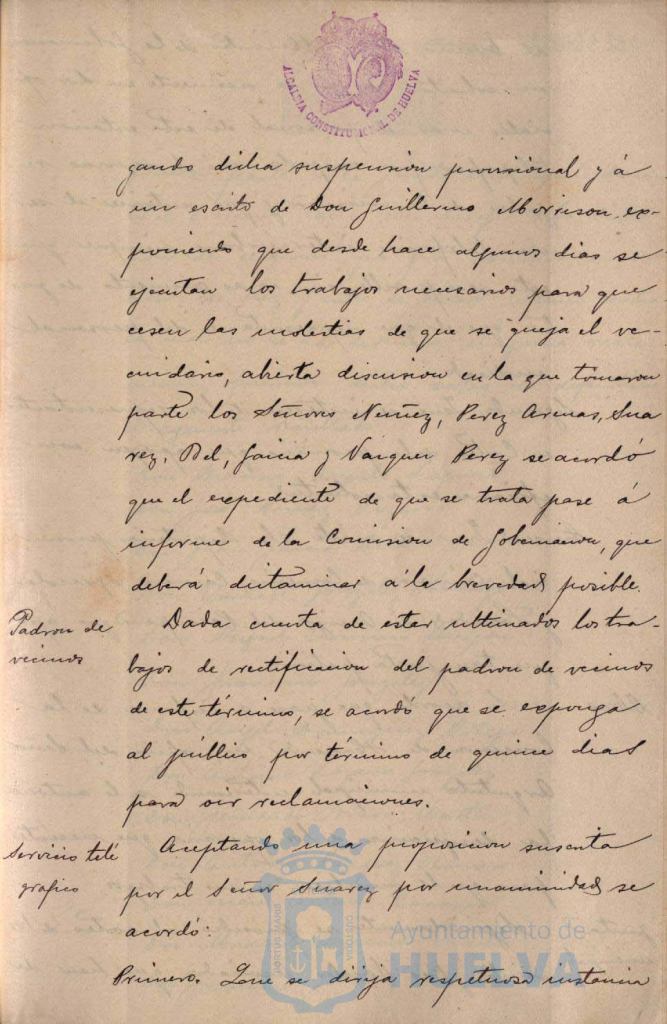 ALCALDIA CONSTITUCIONAL DE HUELVA
gando dicha suspension provisional y á
un escrito de Don Guillermo Morrison ex-
poniendo que desde hace algunos dias se
ejecutan los trabajos necesarios para que
cesen las molestias de que se queja el ve-
cindario, abierta discusion en la que tomaron
parte los Señores Nuñez, Perez Arenas, Sua
rez, Bel, Garcia y Vazquez Perez se acordó
que el expediente de que se trata pase á
informe de la Comision de Gobernacion, que
deberá dictaminar á la brevedad posible.
Padron de
vecinos
Dada cuenta de estar ultimados los tra-
bajos de rectificacion del padron de vecinos
de este término, se acordó que se exponga
al público por término de quince dias
para oir reclamaciones.
Servicio tele
grafico
Aceptando una proposicion suscrita
por el Señor Suarez por unanimidad se
acordó:
Primero. Que se dirija respetuosa instancia
Ayuntamiento de
HUELVA